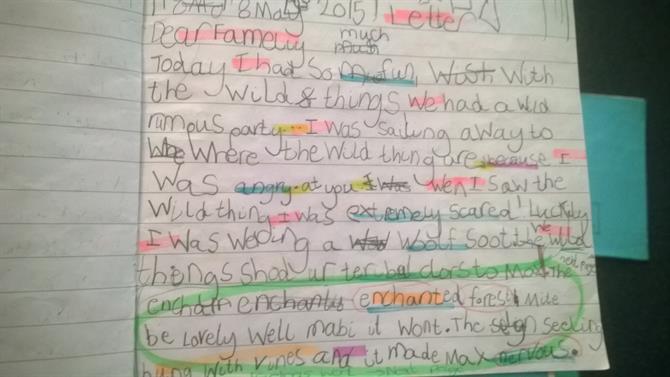 8 May 2015 Letter
Dear Famely
much
Today I had So fun With
the Wild & things We had a wild
rumous party. I was sailing away to
Where the wild thing are because I
was angry at you wen I saw the
Wild thing I was extremely scared! Luckily
I was Wering a Woolf Soot the wild
me
things shod ther to Max. The
next page
encham enchants enchanted forest Mite
be Lovely Well mabi it Wont. The seeling
hung With vines and it made Max nervous.